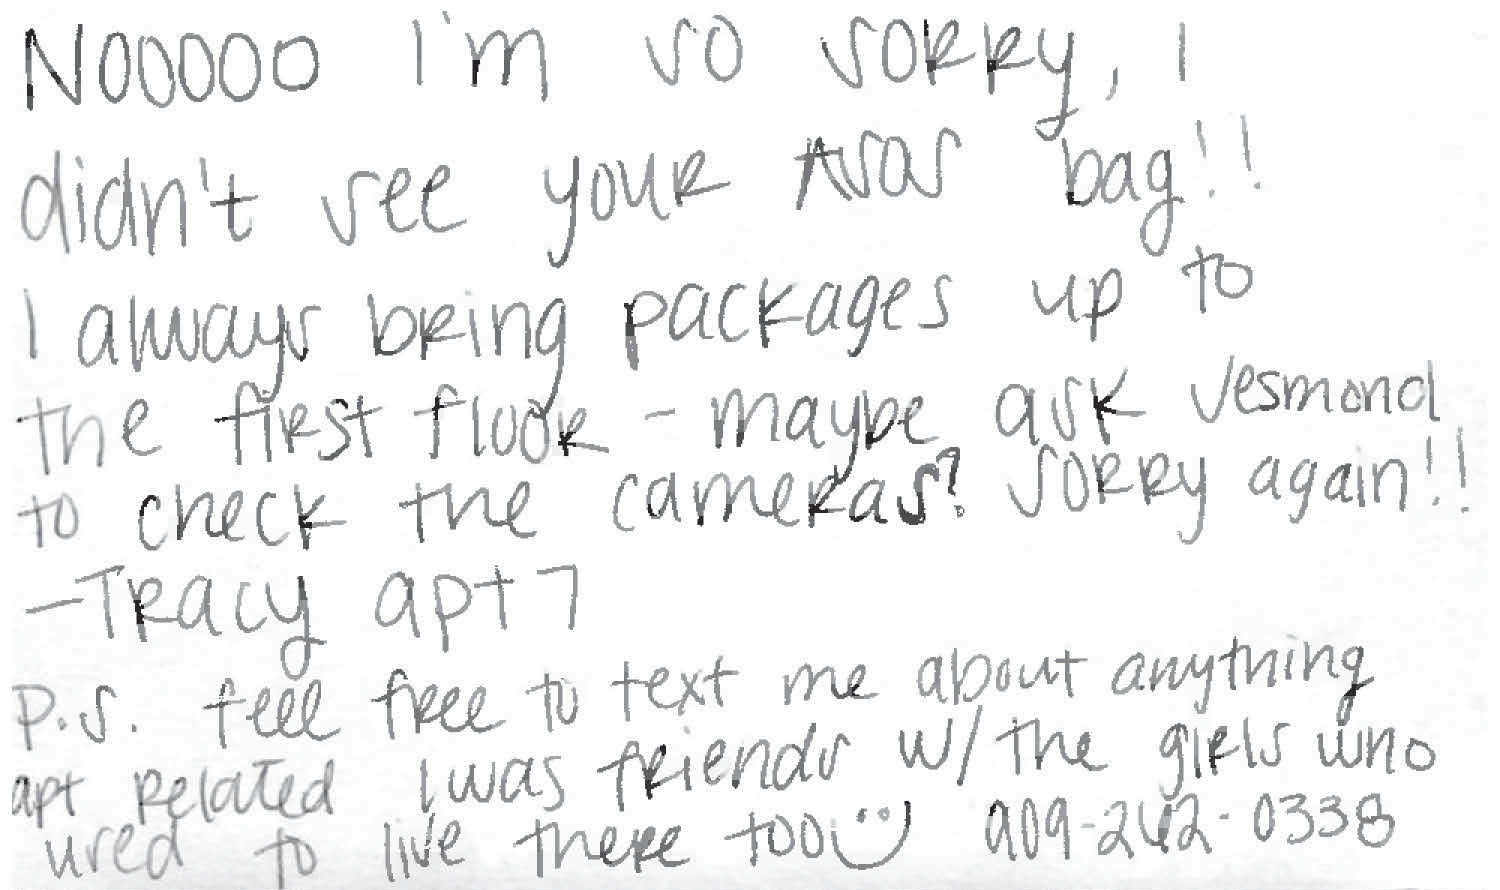 Nooooo I'm so sorry, I
didn't see your Asos bag!!
I always bring packages up to
the first floor - maybe ask Desmond
to check the cameras? Sorry again!!
- Tracy apt 7
P.S. feel free to text me about anything
apt related I was friends w/ the girls who
used to live there too :) 909-262-0338